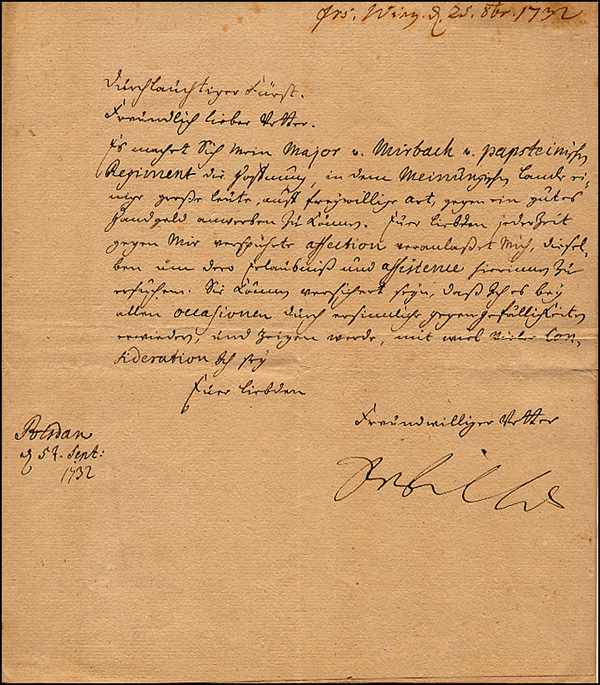 Prs. Wien. d. 25. 8br. 1732
Durchlauchtiger Fürst.
Freündlich lieber Vetter.
Es machet Sich mein Major v. Mirbach v. papsteinischen
Regiment die Hoffnung, in dem Meinüngischen Lande ei-
nige große leüte, auff freÿwillige art, gegen ein gutes
Handgeld anwerben zu können. Eüer liebden jederZeit
gegen Mir verspührte affection veranlaßet Mich, dieсel-
ben um dero Erlaubniß und assistence hierinnen zu
ersuchen. Sie können versichert seÿn, daß Ich es beÿ
allen occasionen durch ersinnliche gegengefälligkeiten
erwiedern, und zeigen werde, mit wie viel Con-
sideration Ich seÿ
Eüer liebden
Freundwilliger Vetter
Potsdam
d 57. Sept:
1732